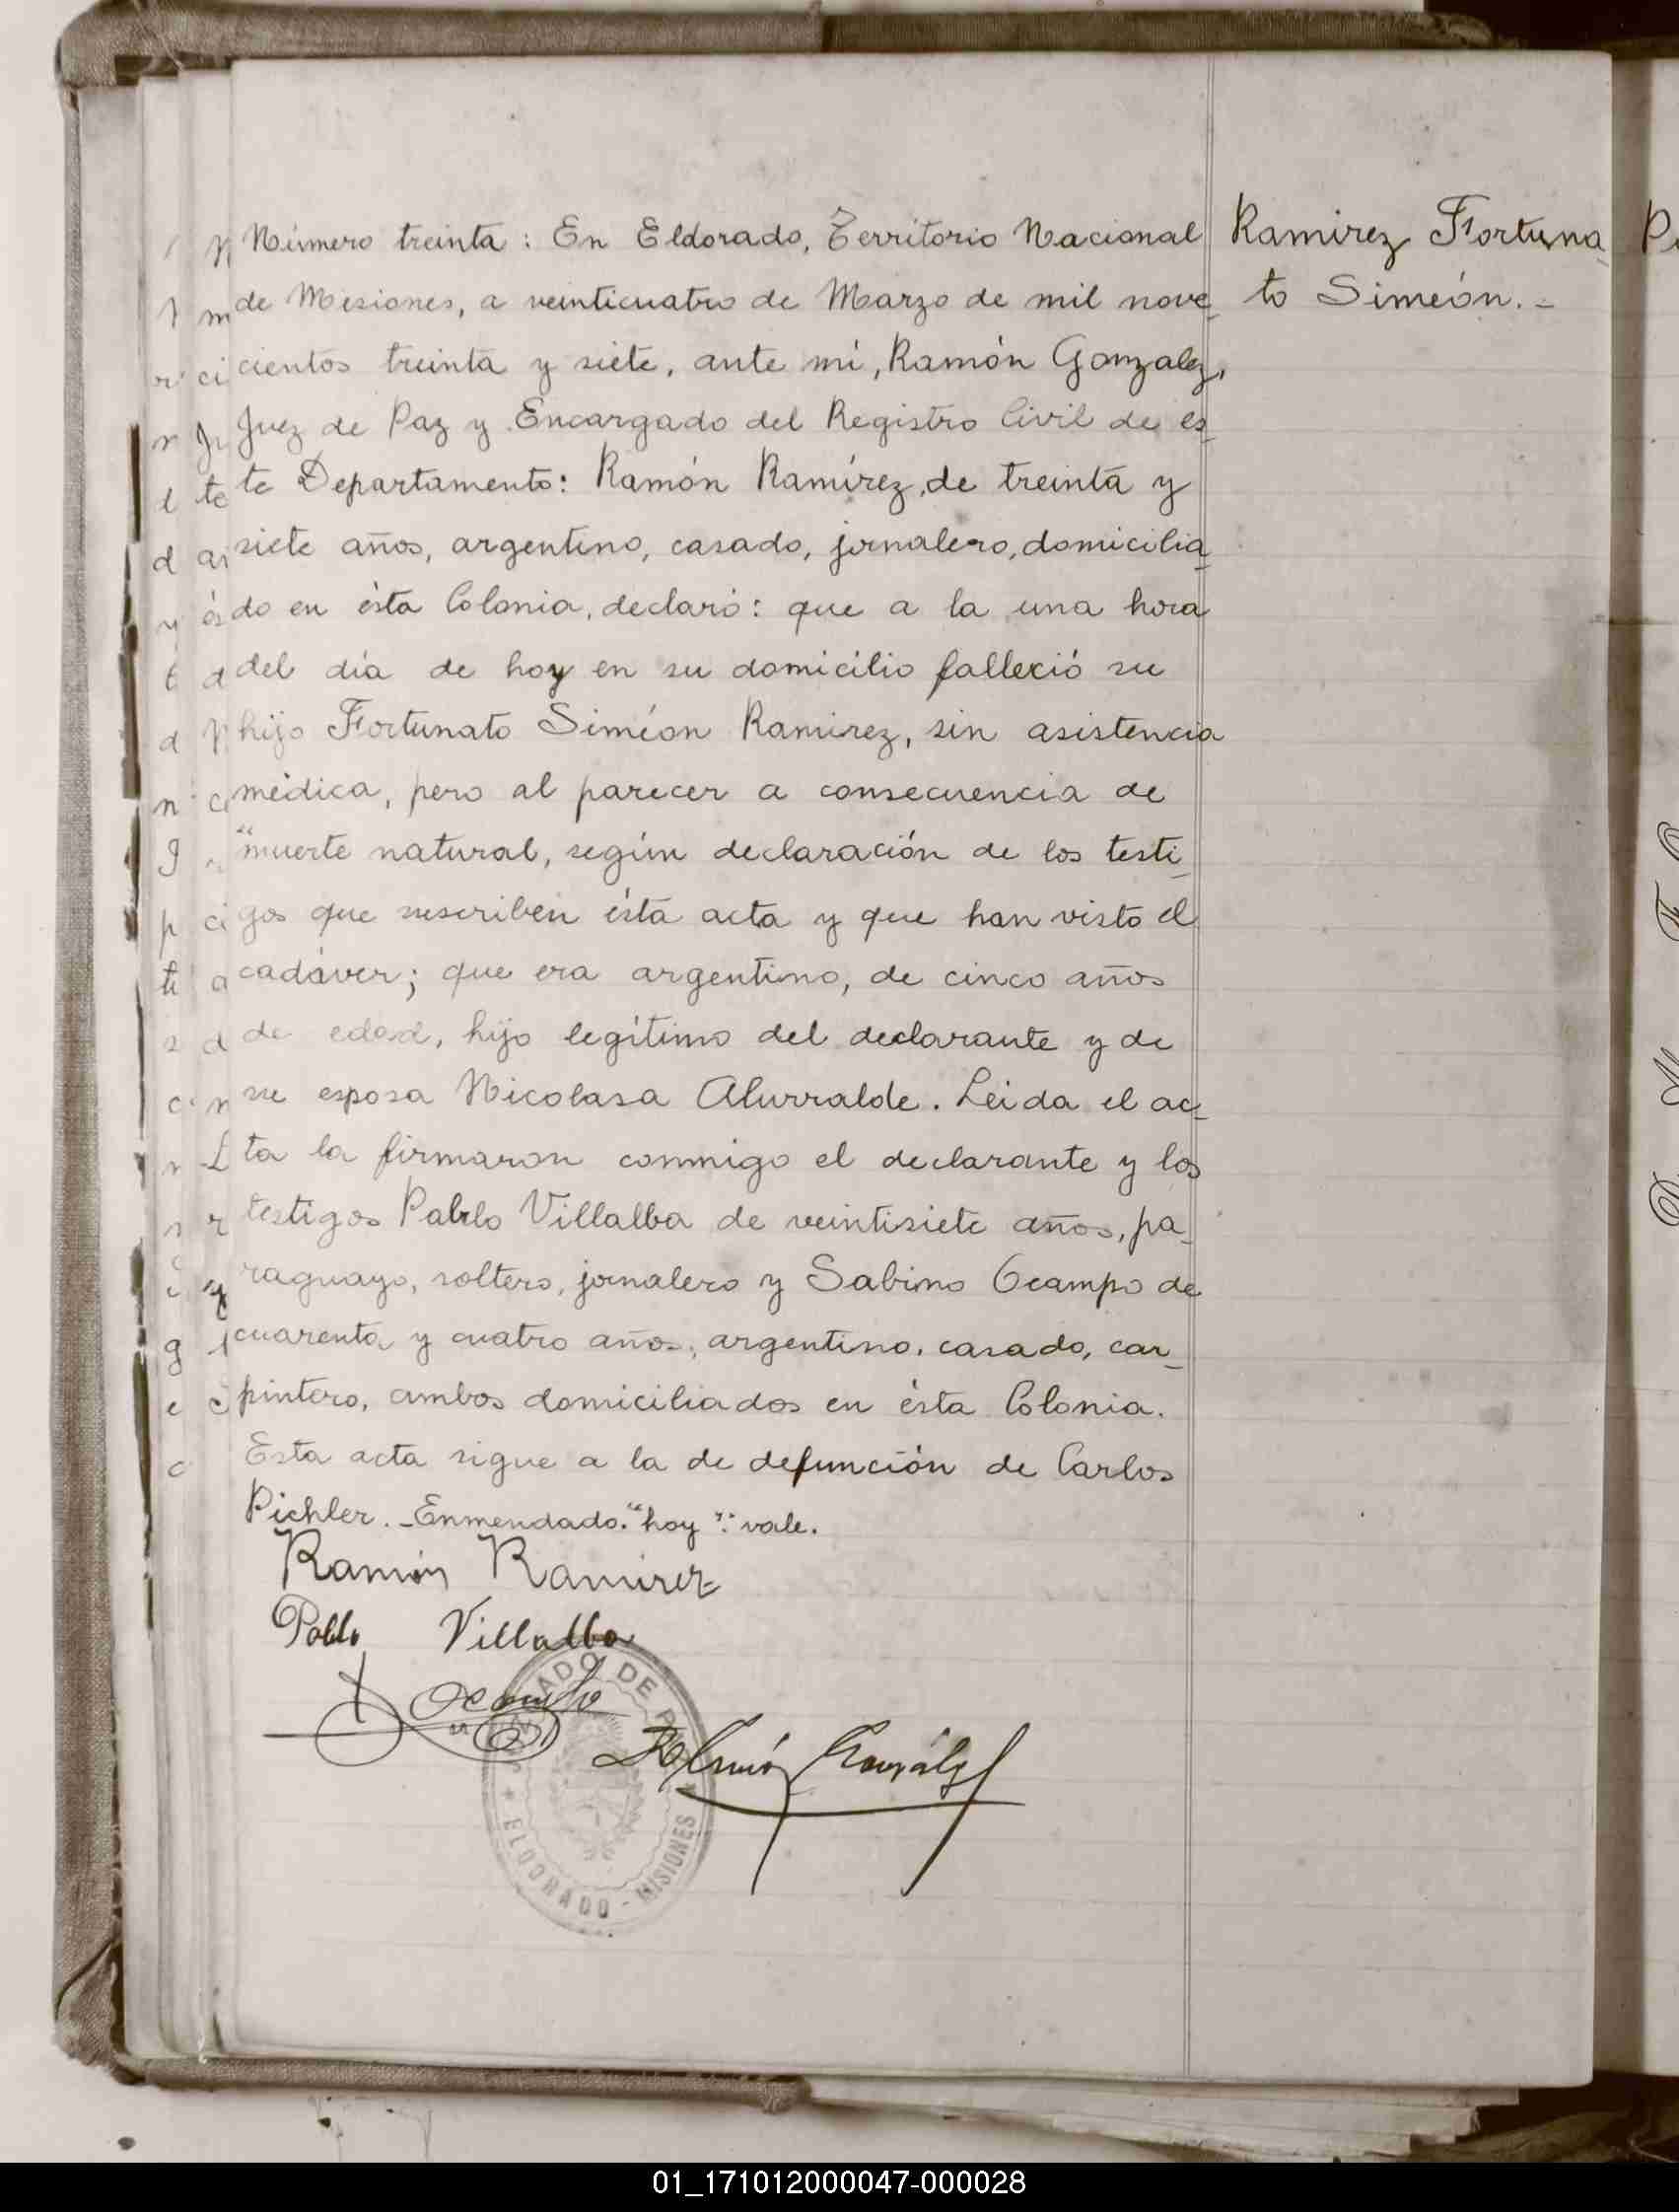 Ramirez Fortuna-
to Simeón.-
Número treinta: En Eldorado, Territorio Nacional
de Misiones, a veinticuatro de Marzo de mil nove-
cientos treinta y siete, ante mí, Ramón Gonzalez,
Juez de Paz y Encargado del Registro Civil de es-
te Departamento: Ramón Ramírez, de treinta y
siete años, argentino, casado, jornalero, domicilia-
do en ésta Colonia, declaró: que a la una hora
del día de hoy en su domicilio falleció su
hijo Fortunato Simeón Ramirez, sin asistencia
médica, pero al parecer a consecuencia de
muerte natural, según declaración de los testi-
gos que suscriben ésta acta y que han visto el
cadáver; que era argentino, de cinco años
de edad, hijo legítimo del declarante y de
su esposa Nicolasa Alurralde. Leida el ac-
ta la firmaron conmigo el declarante y los
testigos Pablo Villalba de veintisiete años, pa-
raguayo, soltero, jornalero y Sabino Ocampo de
cuarenta y cuatro años, argentino, casado, car-
pintero, ambos domiciliados en ésta Colonia.
Esta acta sigue a la de defunción de Carlos
Pichler.-Enmendado:"hoy": vale.
Ramón Ramirez
Pablo Villalba
S Ocampo
Ramón González
JUZGADO DE PAZ
ELDORADO - MISIONES
01_171012000047-000028